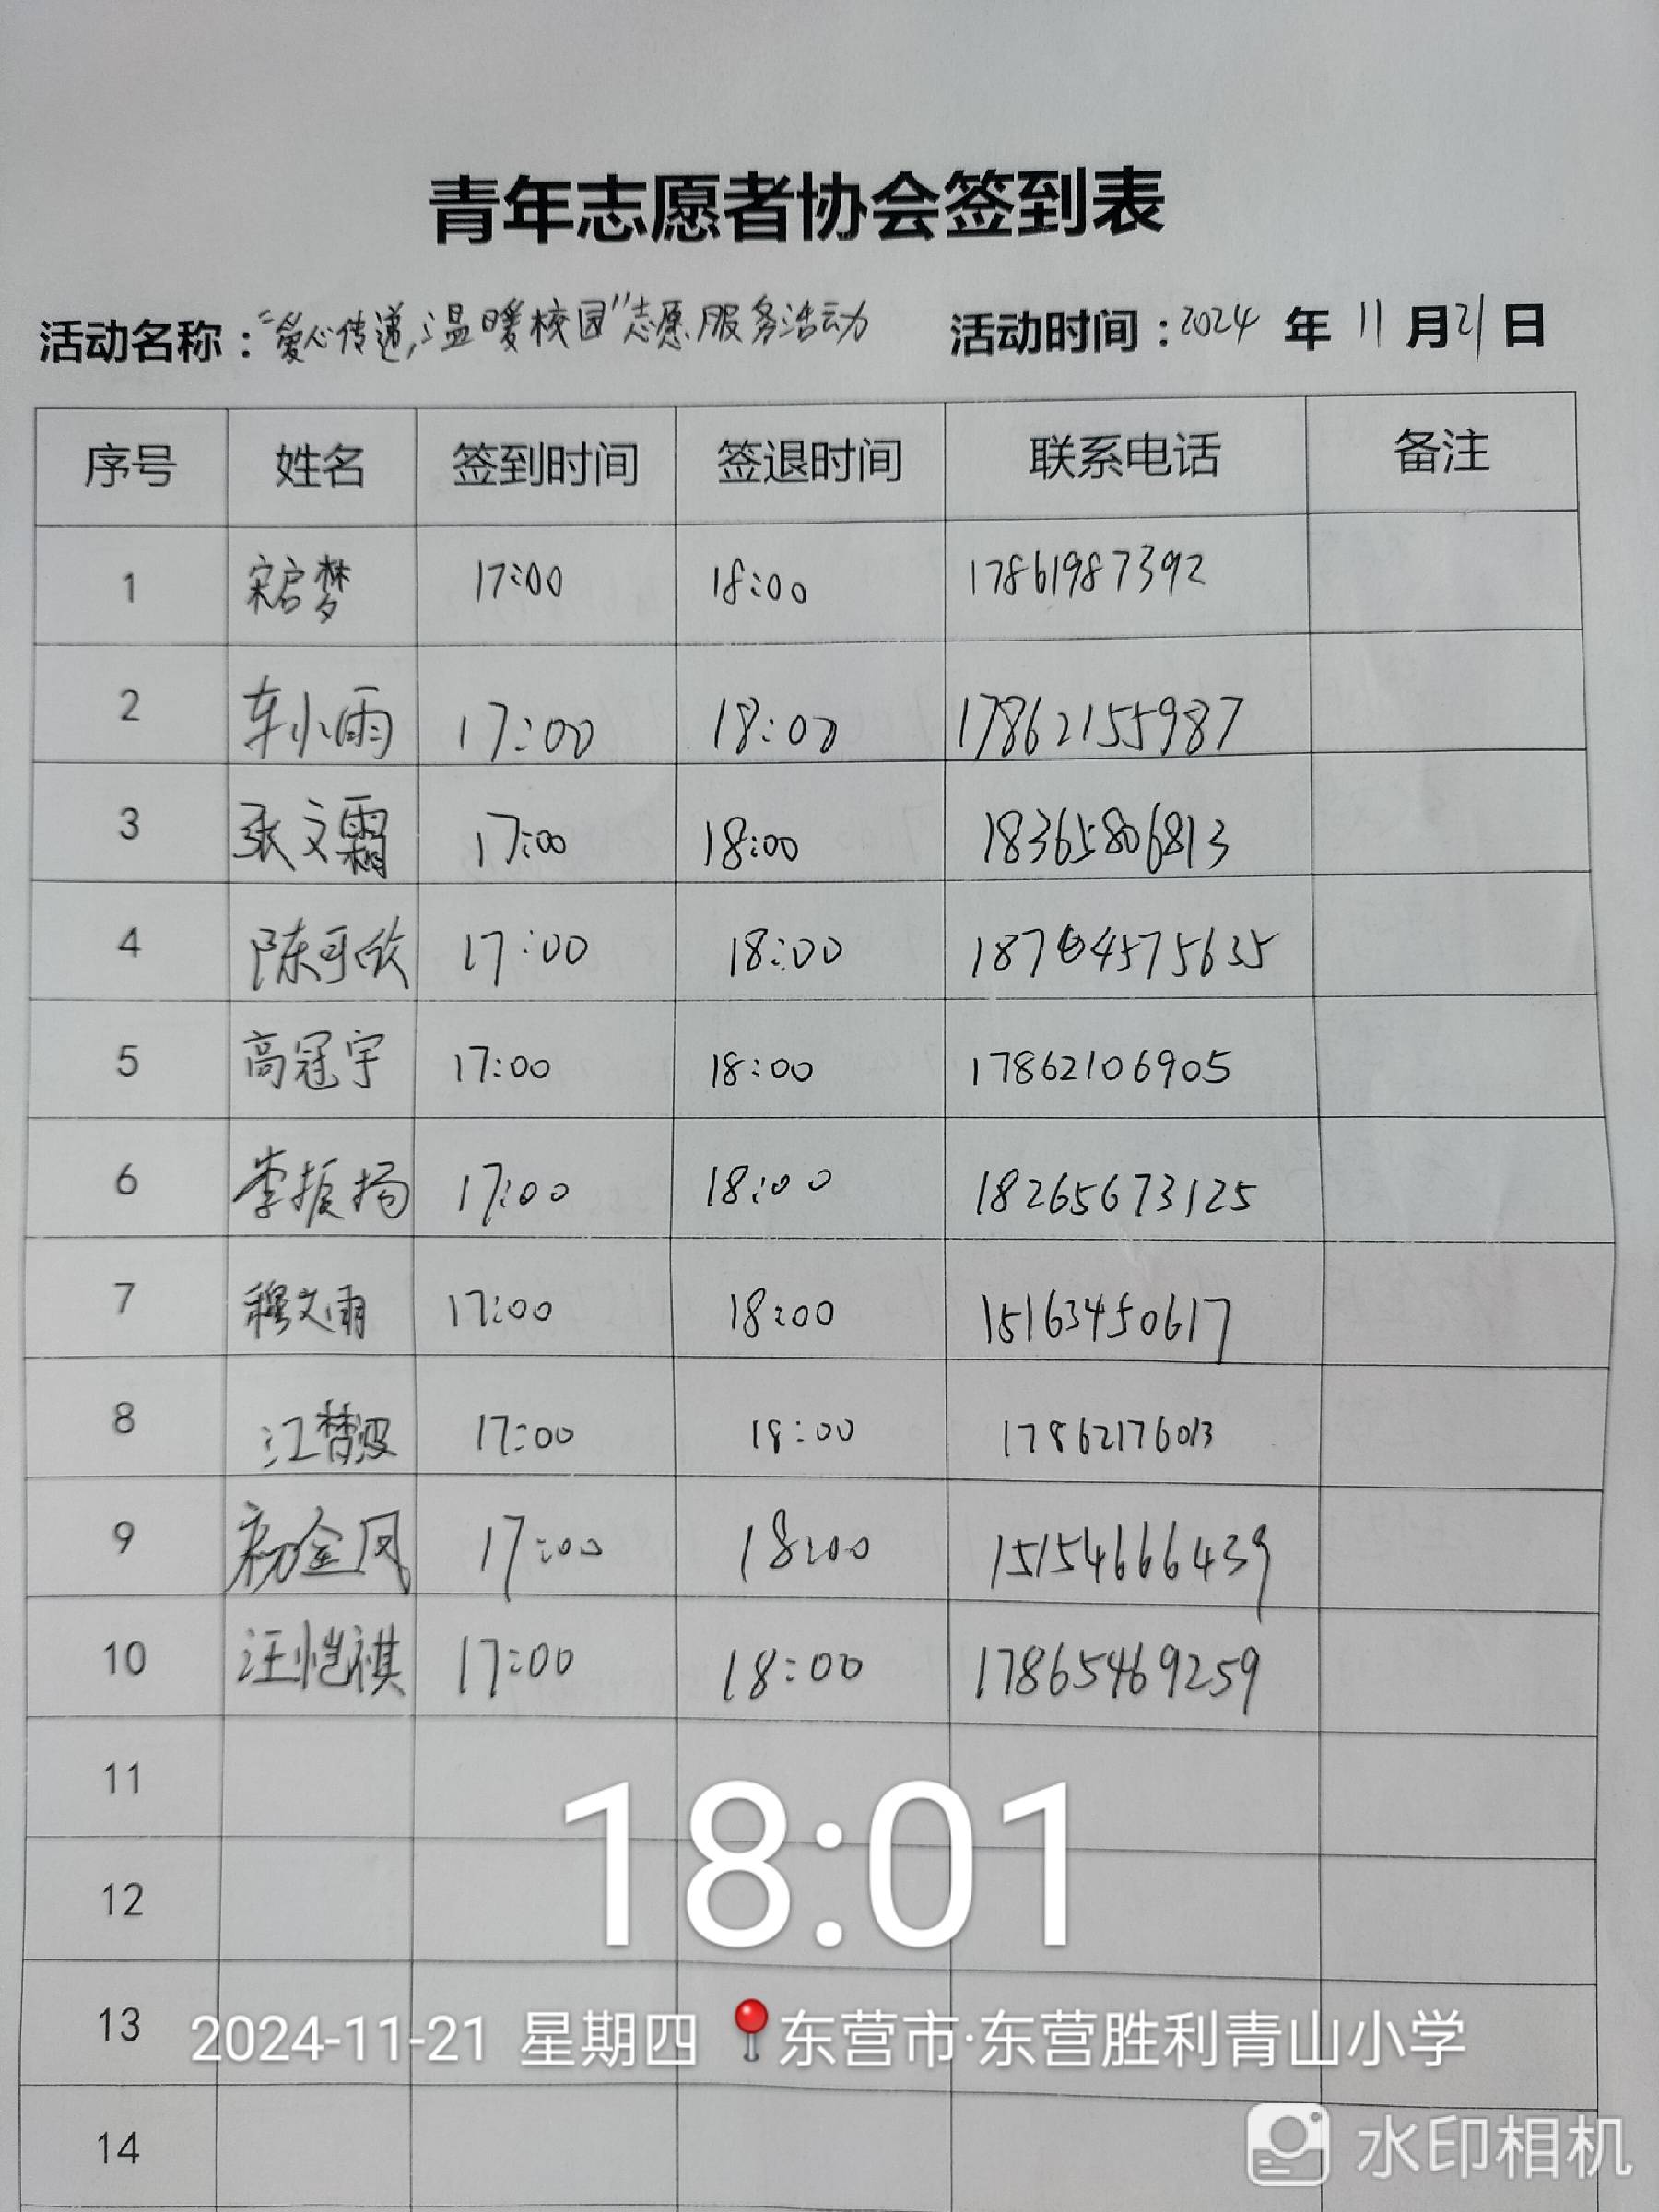 青年志愿者协会签到表
活动名称：“爱心传递，温暖校园”志愿服务活动 活动时间：2024 年 11 月 21 日
序号 姓名 签到时间 签退时间 联系电话 备注
1 宋启梦 17:00 18:00 17861987392
2 车小雨 17:00 18:00 17862155987
3 张文霜 17:00 18:00 18365806813
4 陈可欣 17:00 18:00
5 高冠宇 17:00 18:00 17862106905
6 李振扬 17:00 18:00 18265673125
7 穆文雨 17:00 18:00 15163450617
8 17:00 18:00 17862176013
9 初金凤 17:00 18:00 15154666439
10 汪恺祺 17:00 18:00 17865469259
11
12
18:01
13
2024-11-21 星期四 东营市·东营胜利青山小学
14
水印相机